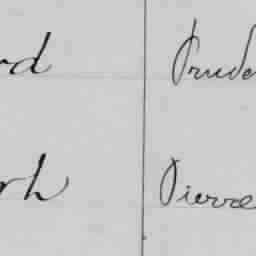 rd Prude
rh Pierre